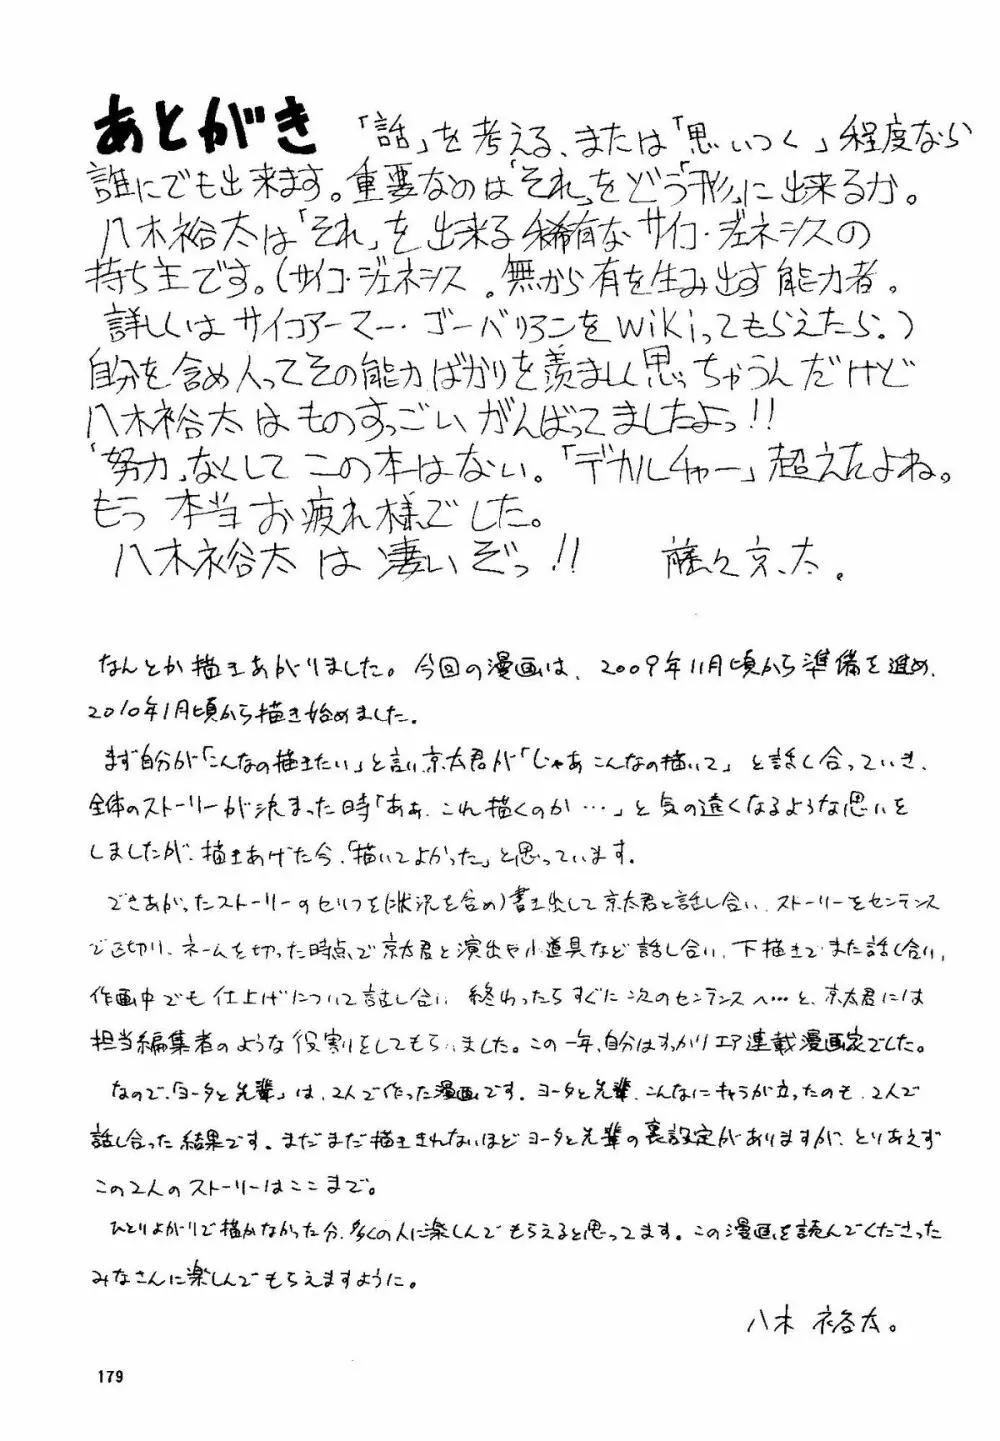 あとがき 「話」を考える、または「思いつく」程度なら
誰にでも出来ます。重要なのは「それ」をどう「形」に出来るか。
八木裕太は「それ」を出来る稀有なサイコ・ジェネシスの
持ち主です。(サイコ・ジェネシス。無から有を生み出す能力者。
詳しくはサイコアーマー・ゴーバリアンをwikiってもらえたら。)
自分を含め人ってその能力ばかりを羨ましく思っちゃうんだけど
八木裕太はものすっごいがんばってましたよっ!!
「努力」なくしてこの本はない。「デカルチャー」超えたよね。
もう本当お疲れ様でした。
八木裕太は凄いぞっ!! 藤久京太.
なんとか描きあがりました。今回の漫画は、2009年11月頃から準備を進め、
2010年1月頃から描き始めました。
まず自分が「こんなの描きたい」と言い京太君が「じゃあこんなの描いて」と話し合っていき、
全体のストーリーが決まった時「ああ、これ描くのか…」と気の遠くなるような思いを
しましたが、描きあげた今、「描いてよかった」と思っています。
できあがったストーリーのセリフを(状況を含め)書き出して京太君と話し合い、ストーリーをセンテンス
で区切り、ネームを切った時点で京太君と演出や小道具など話し合い、下描きでまた話し合い、
作画中でも仕上げについて話し合い 終わったらすぐに次のセンテンスへ…と、京太君には
担当編集者のような役割をしてもらいました。この一年、自分はすっかりエア連載漫画家でした。
なので、「ヨータと先輩」は、2人で作った漫画です。ヨータと先輩、こんなにキャラが立ったのも、2人で
話し合った結果です。まだまだ描ききれないほどヨータと先輩の裏設定がありますが、とりあえず
この2人のストーリーはここまで。
ひとりよがりで描かなかった分、多くの人に楽しんでもらえると思ってます。この漫画を読んでくださった
みなさんに楽しんでもらえますように。
八木 裕太。
179